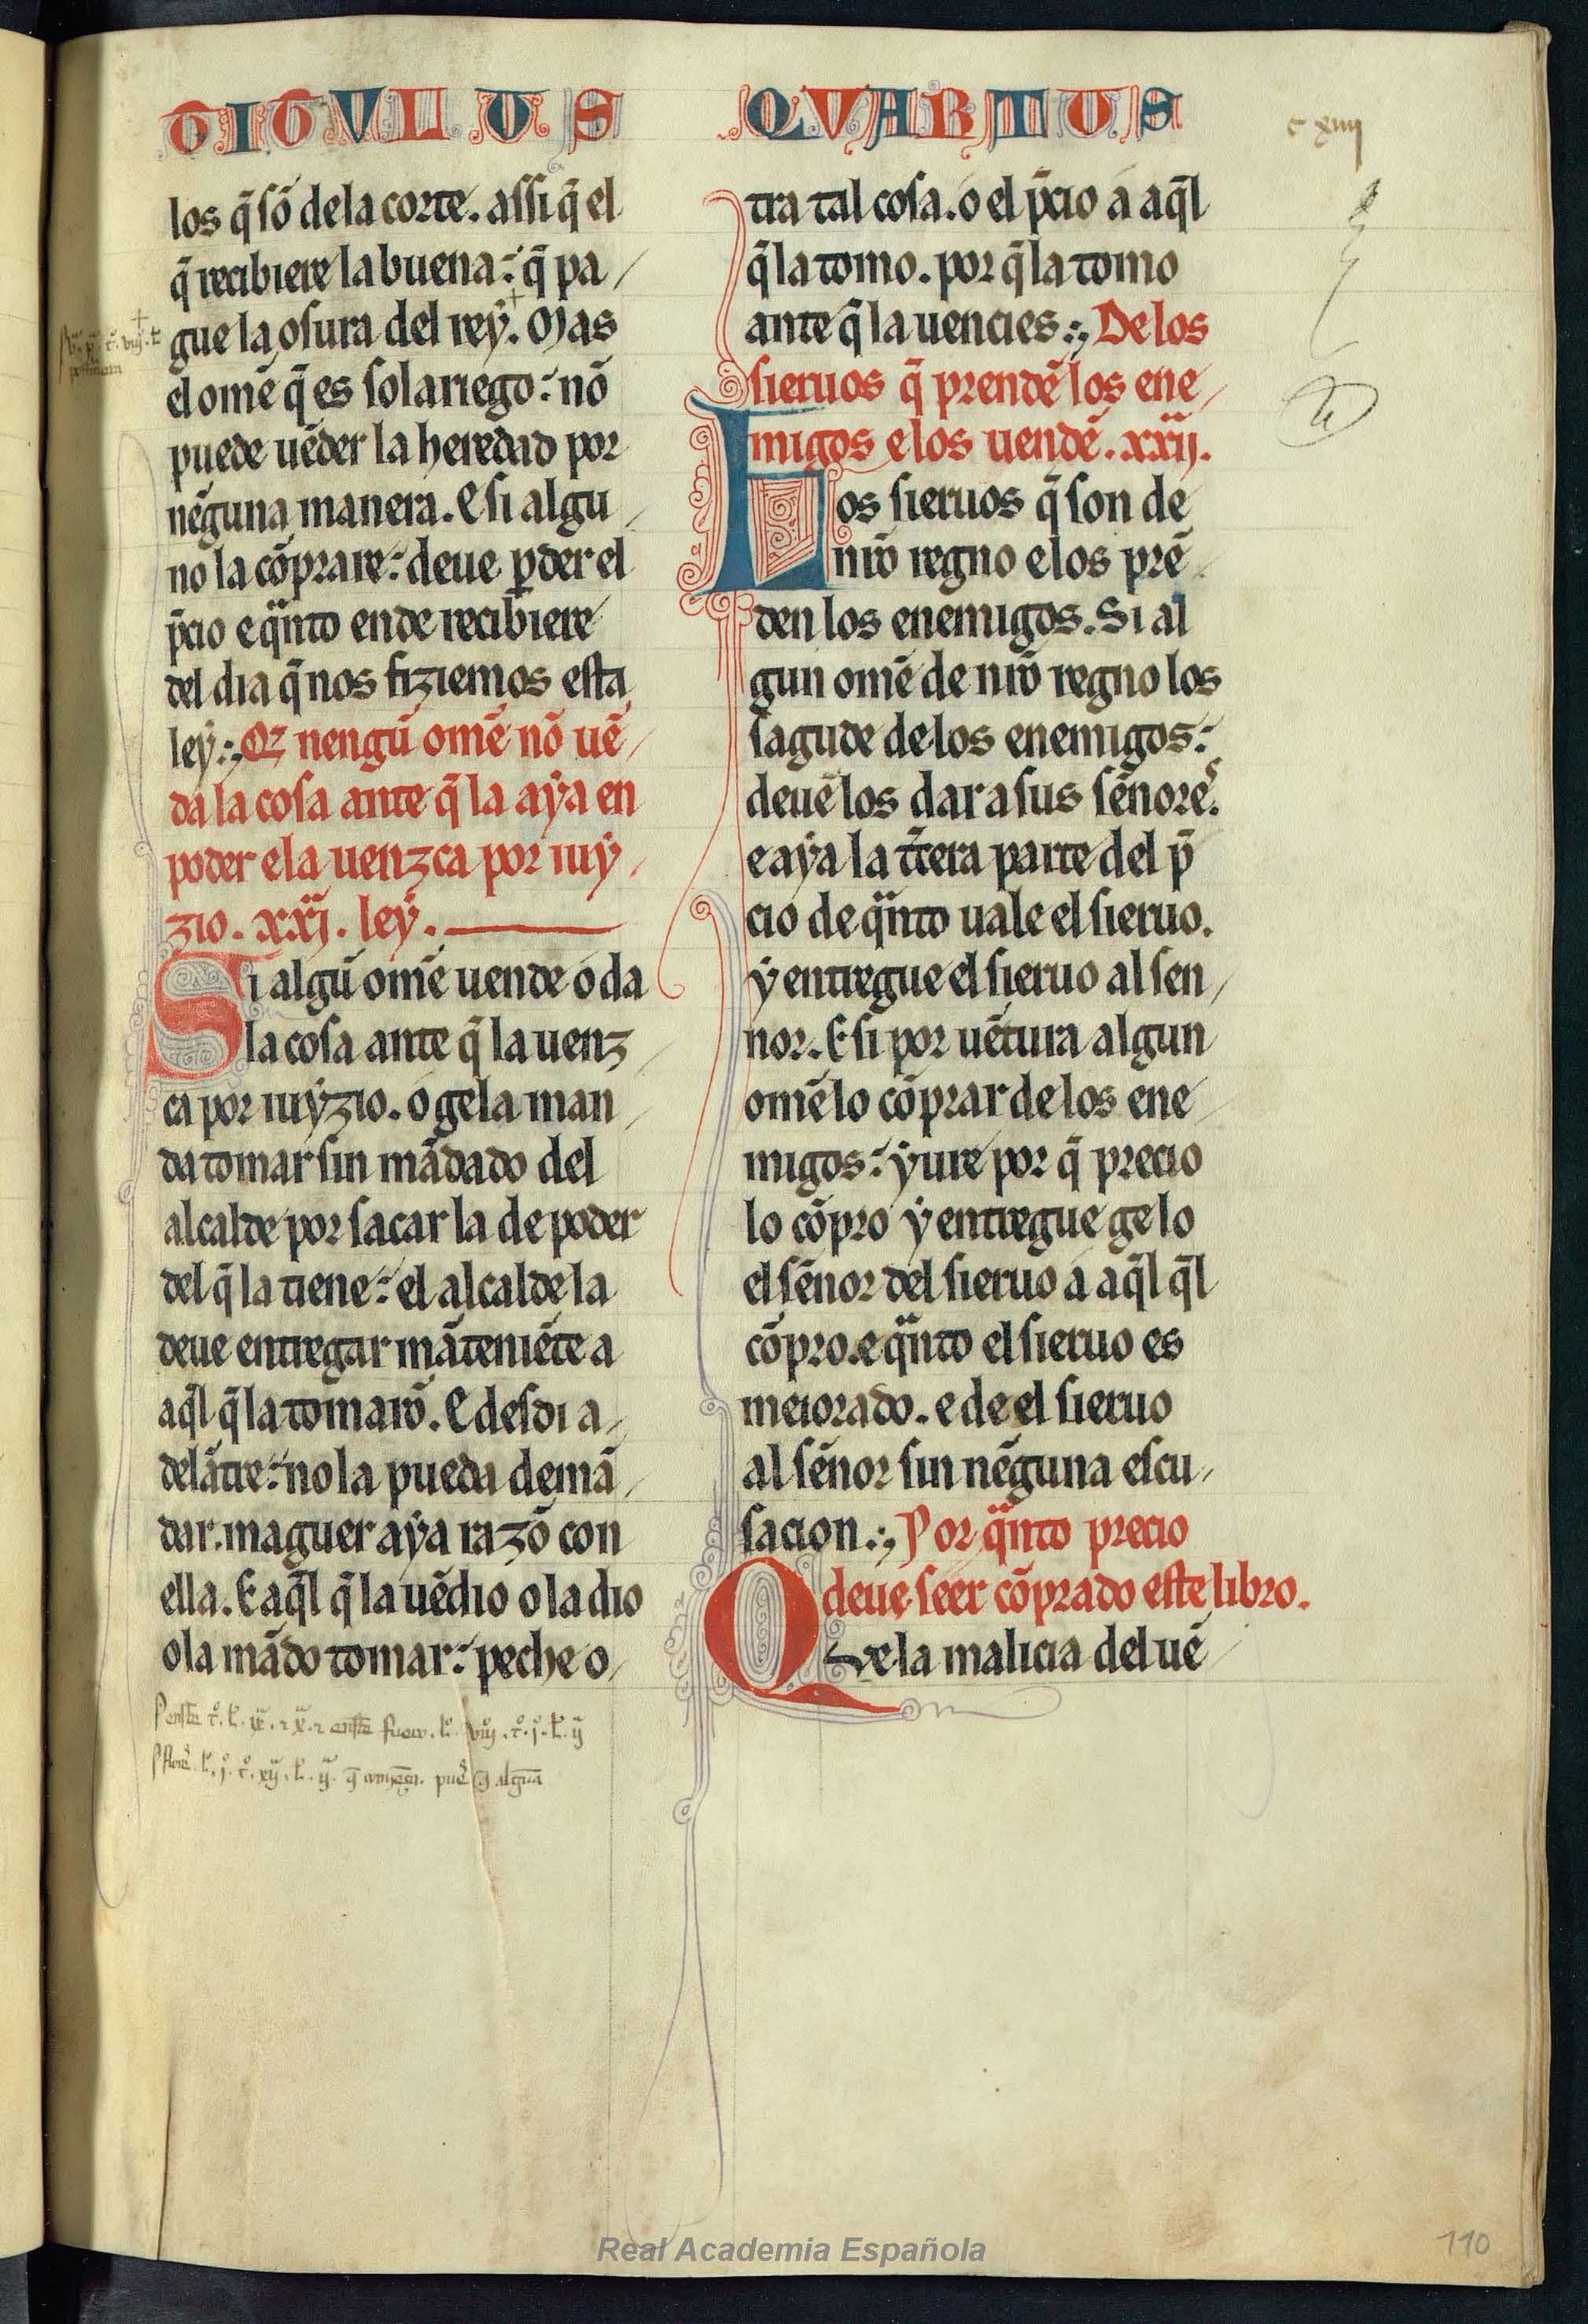 TITULUS QUARTUS
c xiiij
los q̃ sõ de la corte. assi q̃ el
q̃ recibiere la buena: q̃ pa
gue la osura del rey. Mas
el omẽ q̃ es solariego: nõ
puede uẽder la heredad por
nẽguna manera. E si algu
no la cõprare: deue ꝑder el
p̃cio e q̃nto ende recibiere
del dia q̃ nos fiziemos esta
ley. Qᷣ nengũ omẽ nõ uẽ
da la cosa ante q̃ la aya en
poder e la uenzca por iuy
zio. xxj. ley.
Si algũ omẽ uende o da
la cosa ante q̃ la uenz
ca por iuyzio. o ge la man
da tomar sin mãdado del
alcalde por sacar la de poder
del q̃ la tiene: el alcalde la
deue entregar mãteniẽte a
aq̃l q̃ la tomarõ. E desdi a
delãtre: no la pueda demã
dar. maguer aya razõ con
ella. E aq̃l q̃ la uẽdio o la dio
o la mãdo tomar: peche o
tra tal cosa. o el p̃cio a aq̃l
q̃ la tomo. por q̃ la tomo
ante q̃ la uencies. De los
sieruos q̃ prendẽ los ene
migos e los uendẽ. xxij.
Los sieruos q̃ son de
nr̃o regno e los prẽ
den los enemigos. Si al
gun omẽ de nr̃o regno los
sagude de los enemigos:
deuẽ los dar a sus sẽnores.
e aya la t̃cera parte del p̃
cio de q̃nto uale el sieruo.
y entregue el sieruo al sen
nor. E si por uẽtura algun
omẽ lo cõprar de los ene
migos: yure por q̃ precio
lo cõpro y entregue ge lo
el sẽnor del sieruo a aq̃l q̃l
cõpro. e q̃nto el sieruo es
meiorado. e de el sieruo
al sẽnor sin nẽguna escu
sacion. Por q̃nto precio
deue seer cõprado este libro.
Que la malicia del uẽ
110
Real Academia Española